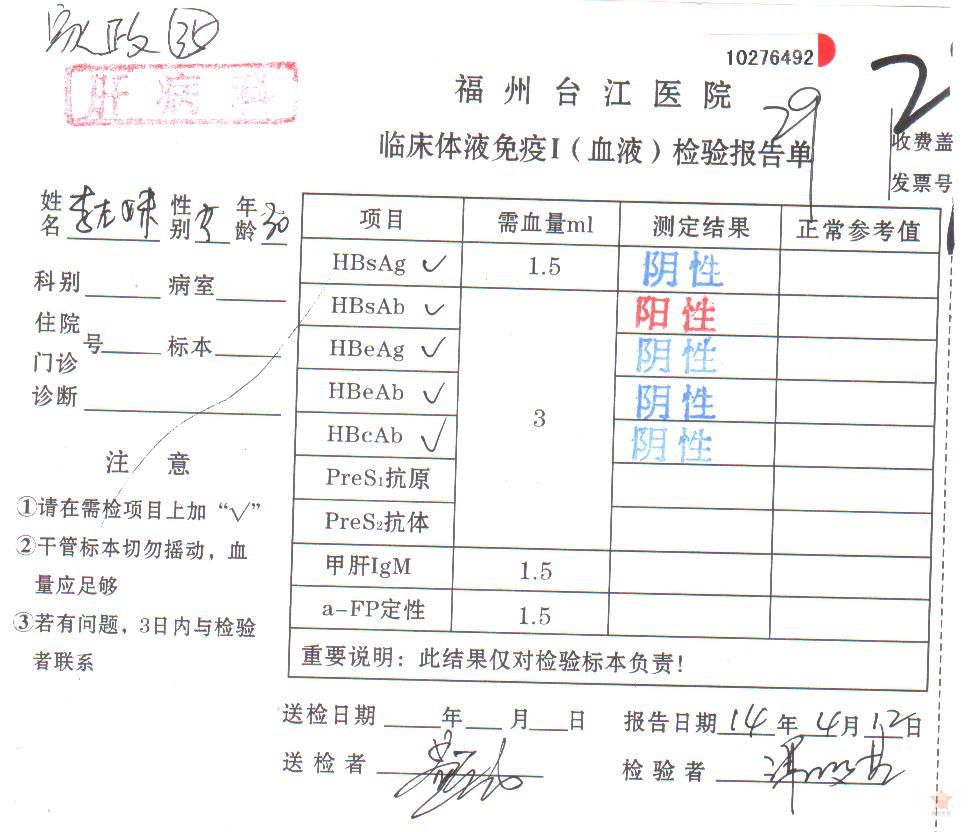 家政 35
肝病科
10276492
福州台江医院
29
临床体液免疫I（血液）检验报告单
收费盖
发票号
姓名 性别 女 年龄 30
科别 病室
住院号 标本
门诊
诊断
注 意
①请在需检项目上加“√”
②干管标本切勿摇动，血
量应足够
③若有问题，3日内与检验
者联系
项目 需血量ml 测定结果 正常参考值
HBsAg √ 1.5 阴性
HBsAb √ 3 阳性
HBeAg √ 阴性
HBeAb √ 阴性
HBcAb √ 阴性
PreS₁抗原
PreS₂抗体
甲肝IgM 1.5
a-FP定性 1.5
重要说明：此结果仅对检验标本负责！
送检日期 年 月 日 报告日期 14 年 4月 12日
送检者 检验者